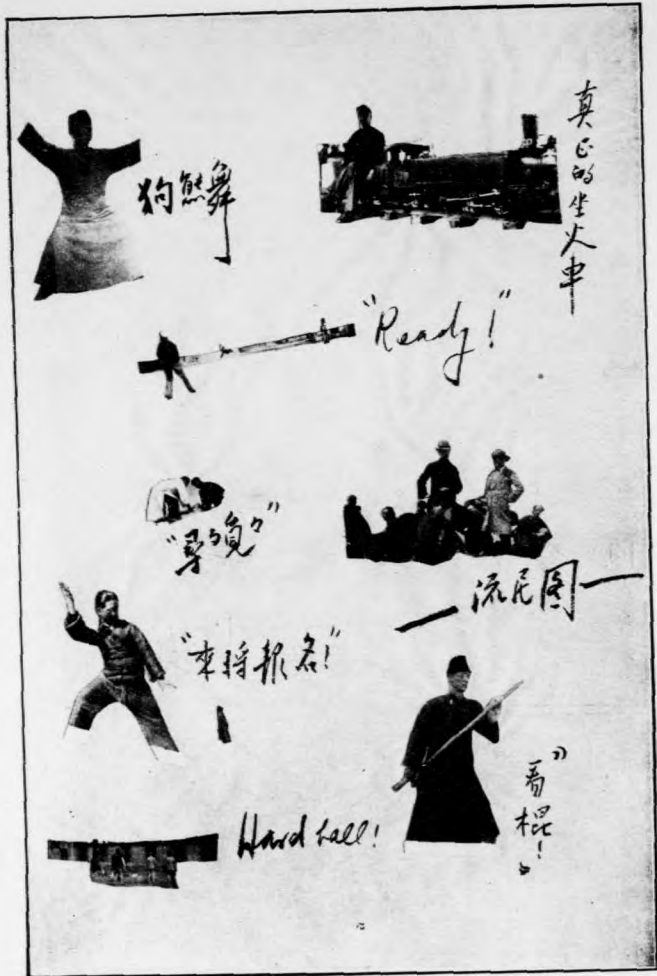 狗熊舞
真正的坐火車
"Ready!"
"尋々覓々"
— 流民图 —
"來將報名!"
"看棍!"
Hard ball!